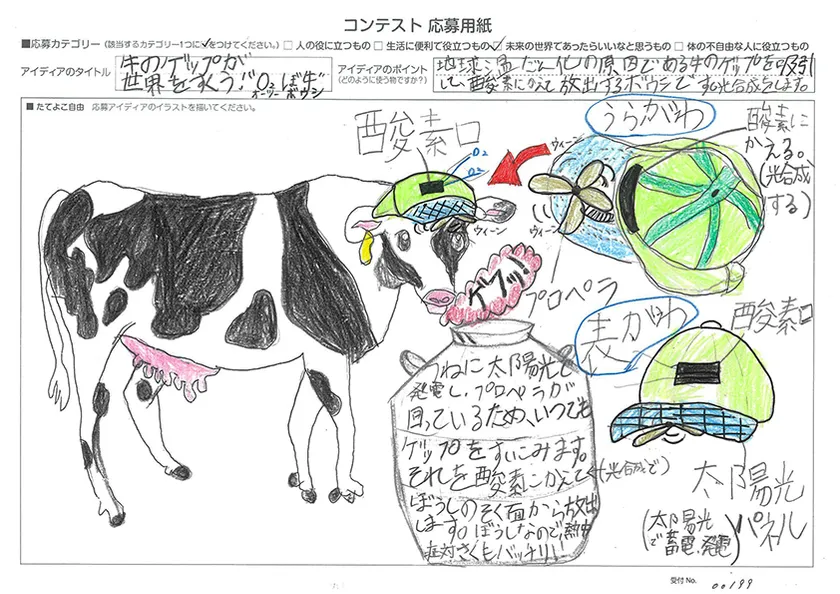 コンテスト 応募用紙
■応募カテゴリー（該当するカテゴリー1つに✓をつけてください。）□ 人の役に立つもの □ 生活に便利で役立つもの ☑ 未来の世界であったらいいなと思うもの □ 体の不自由な人に役立つもの
アイデアのタイトル
牛のゲップが
世界を救う！O₂ぼ牛
オーツー ボウシ
アイディアのポイント
（どのように使う物ですか？）
地球温だん化の原因である牛のゲップを吸引
して、酸素にかえて放出するボウシです。光合成もします。
■ たてよこ自由 応募アイディアのイラストを描いてください。
酸素口
O2
O2
ウィーン
ウィーン
ウィーン
うらがわ
酸素に
かえる。
(光合成
する)
ゲフッ！
プロペラ
表がわ
酸素口
つねに太陽光で
発電し、プロペラが
回っているため、いつでも
ゲップをすいこみます。
それを酸素にかえて(光合成で)
ぼうしのそく面から放出
します。ぼうしなので、熱中
症対さくもバッチリ！
太陽光
パネル
(太陽光
で蓄電、発電)
受付 No.
00199